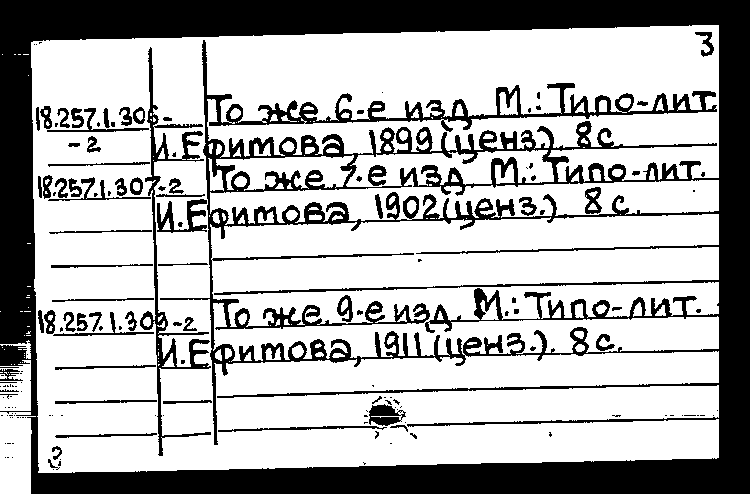 3
18.257.1.306- То же. 6-е изд. М.: Типо-лит.
-2 И.Ефимова, 1899 (ценз.). 8 с.
18.257.1.307-2 То же. 7-е изд. М.: Типо-лит.
И.Ефимова, 1902 (ценз.). 8 с.
18.257.1.309-2 То же. 9-е изд. М.: Типо-лит.
И.Ефимова, 1911 (ценз.). 8 с.
3